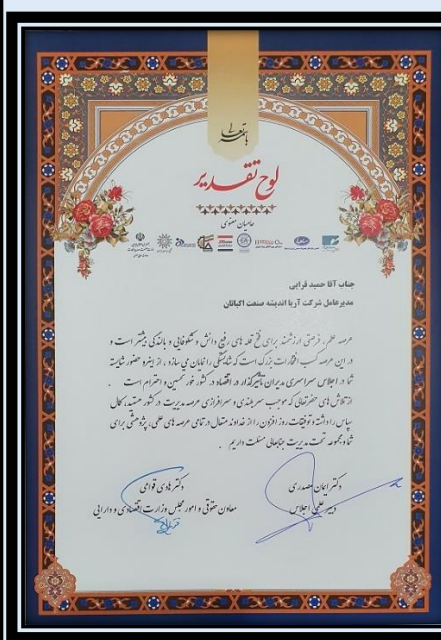 باسمه تعالی
لوح تقدیر
حامیان معنوی
جناب آقا حمید قرایی
مدیرعامل شرکت آریا اندیشه صنعت اکباتان
عرصه علم، فرصتی ارزشمند برای فتح قله های رفیع دانش و شکوفایی و بالندگی بیشتر است و
در این عرصه کسب افتخارات بزرگ است که شایستگی را نمایان می سازد، از اینرو حضور شایسته
شما در اجلاس سراسری مدیران تأثیرگذار در اقتصاد در کشور خور تحسین و احترام است .
از تلاش های حضرتعالی که موجب سربلندی و سرافرازی عرصه مدیریت در کشور هستید، کمال
سپاس را داشته و توفیقات روز افزون را از خداوند متعال در تمامی عرصه های علمی، پژوهشی برای
شما و مجموعه تحت مدیریت جنابعالی مسئلت داریم .
دکتر ایمان مصدری
دبیر علمی اجلاس
دکتر هادی قوامی
معاون حقوقی و امور مجلس وزارت اقتصادی و دارایی